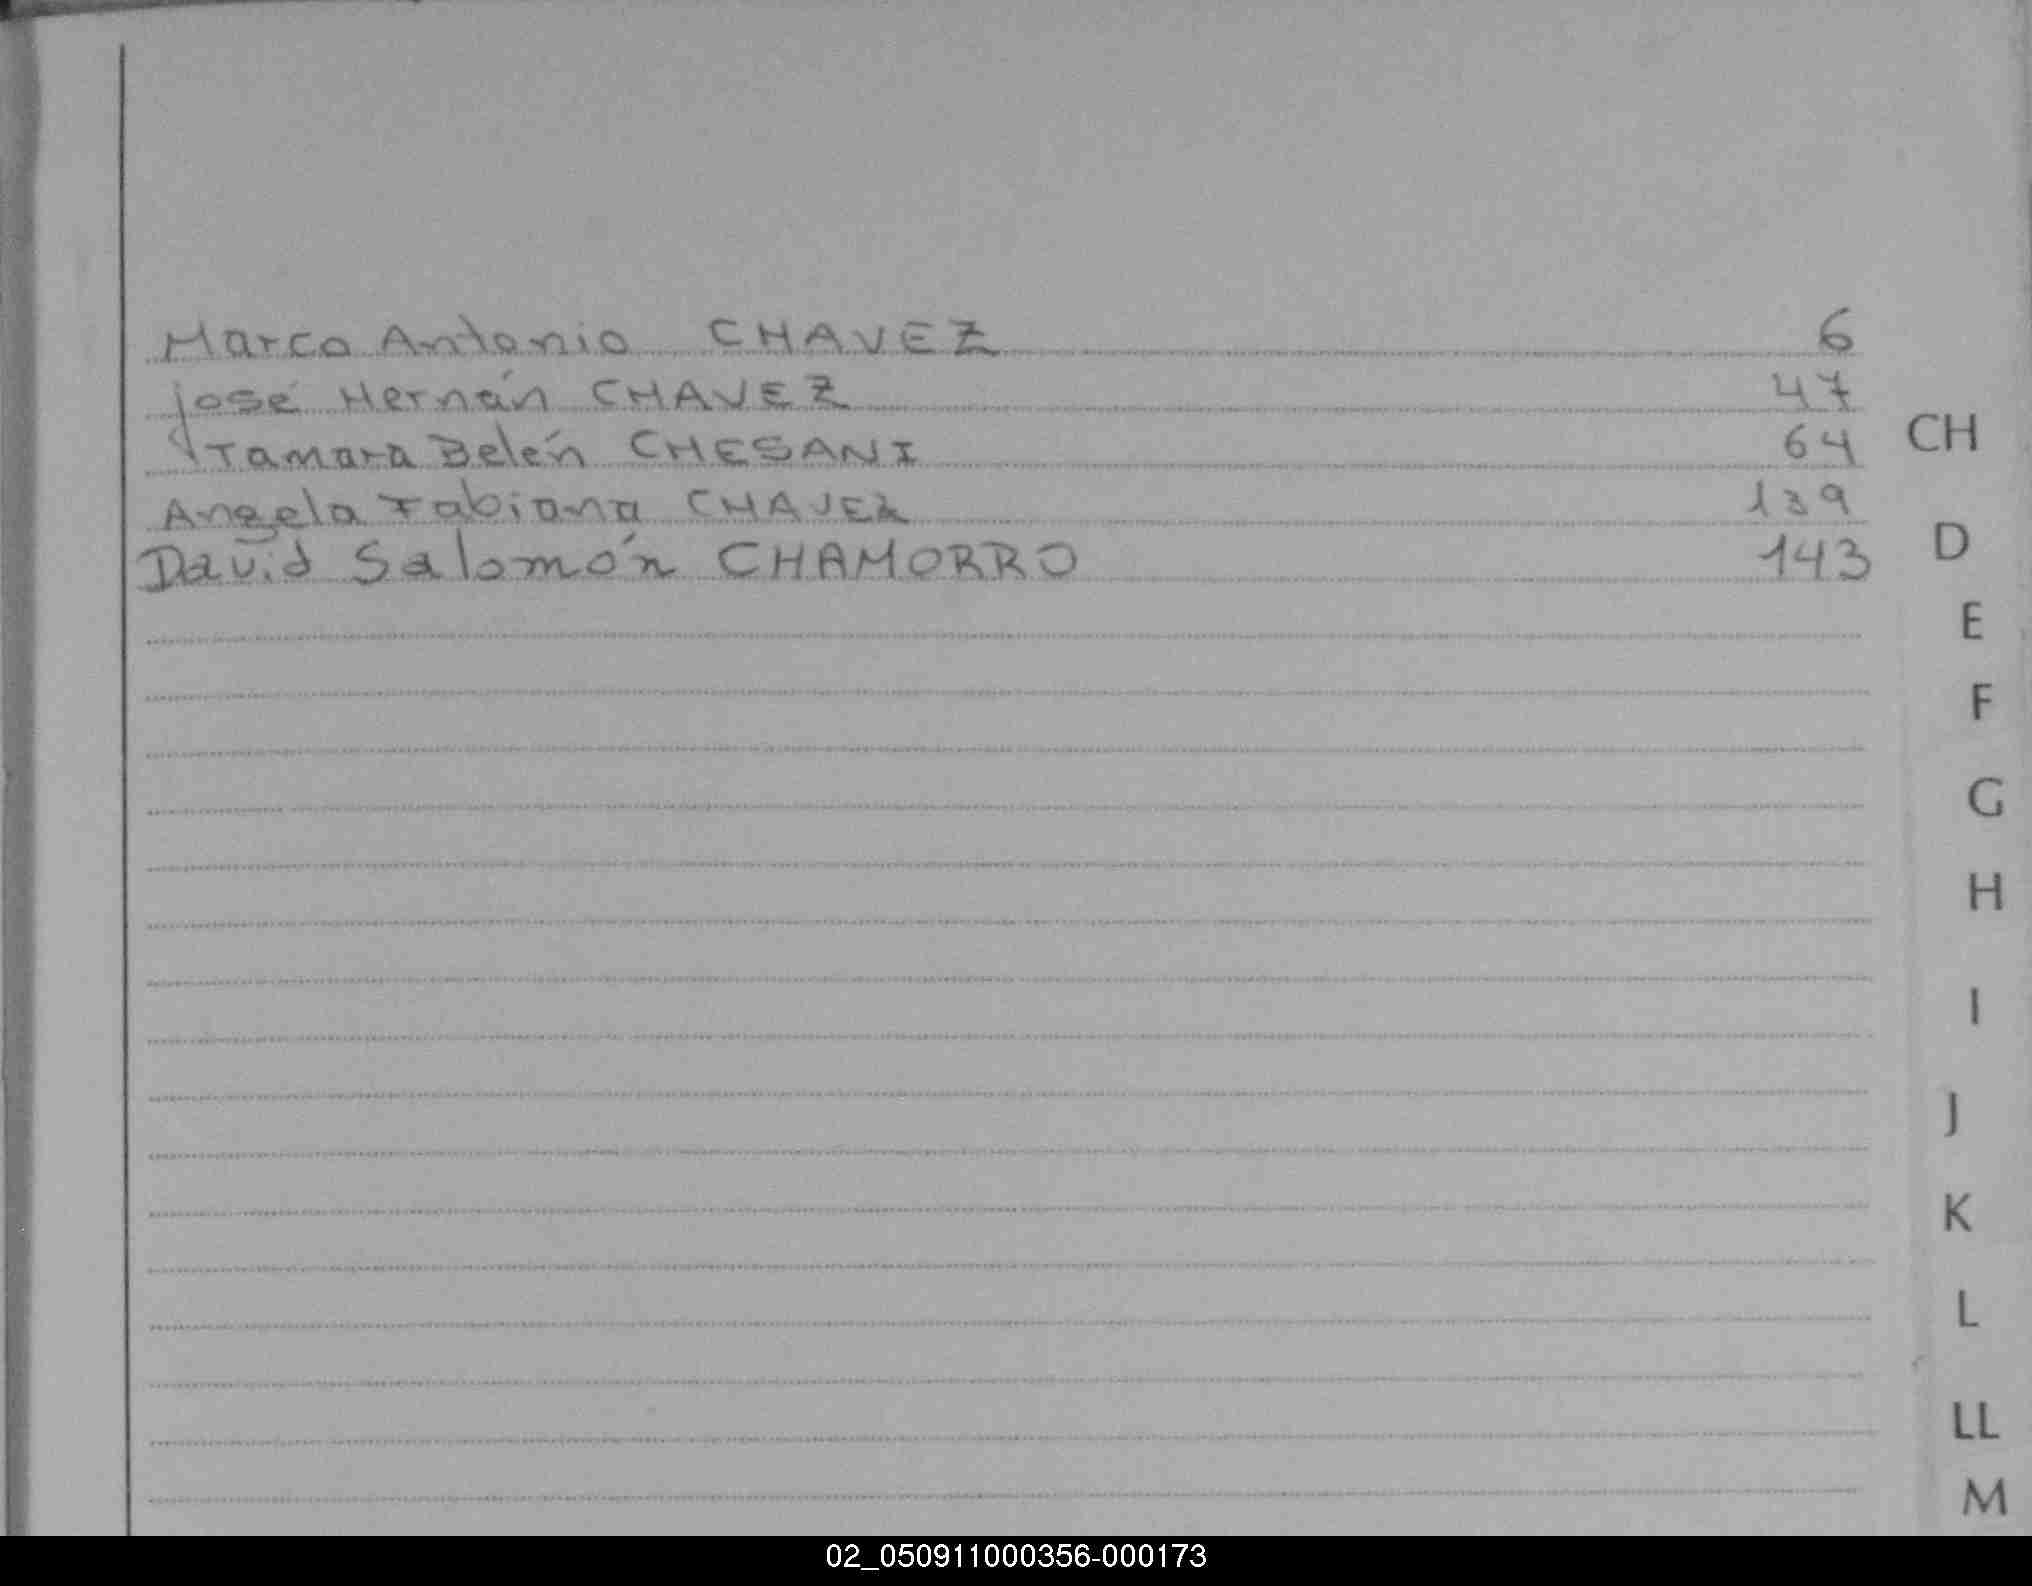 Marco Antonio CHAVEZ 6
José Hernán CHAVEZ 47
Tamara Belén CHESANI 64
Angela Fabiana CHAVEZ 139
David Salomón CHAMORRO 143
CH
D
E
F
G
H
I
J
K
L
LL
M
02_050911000356-000173